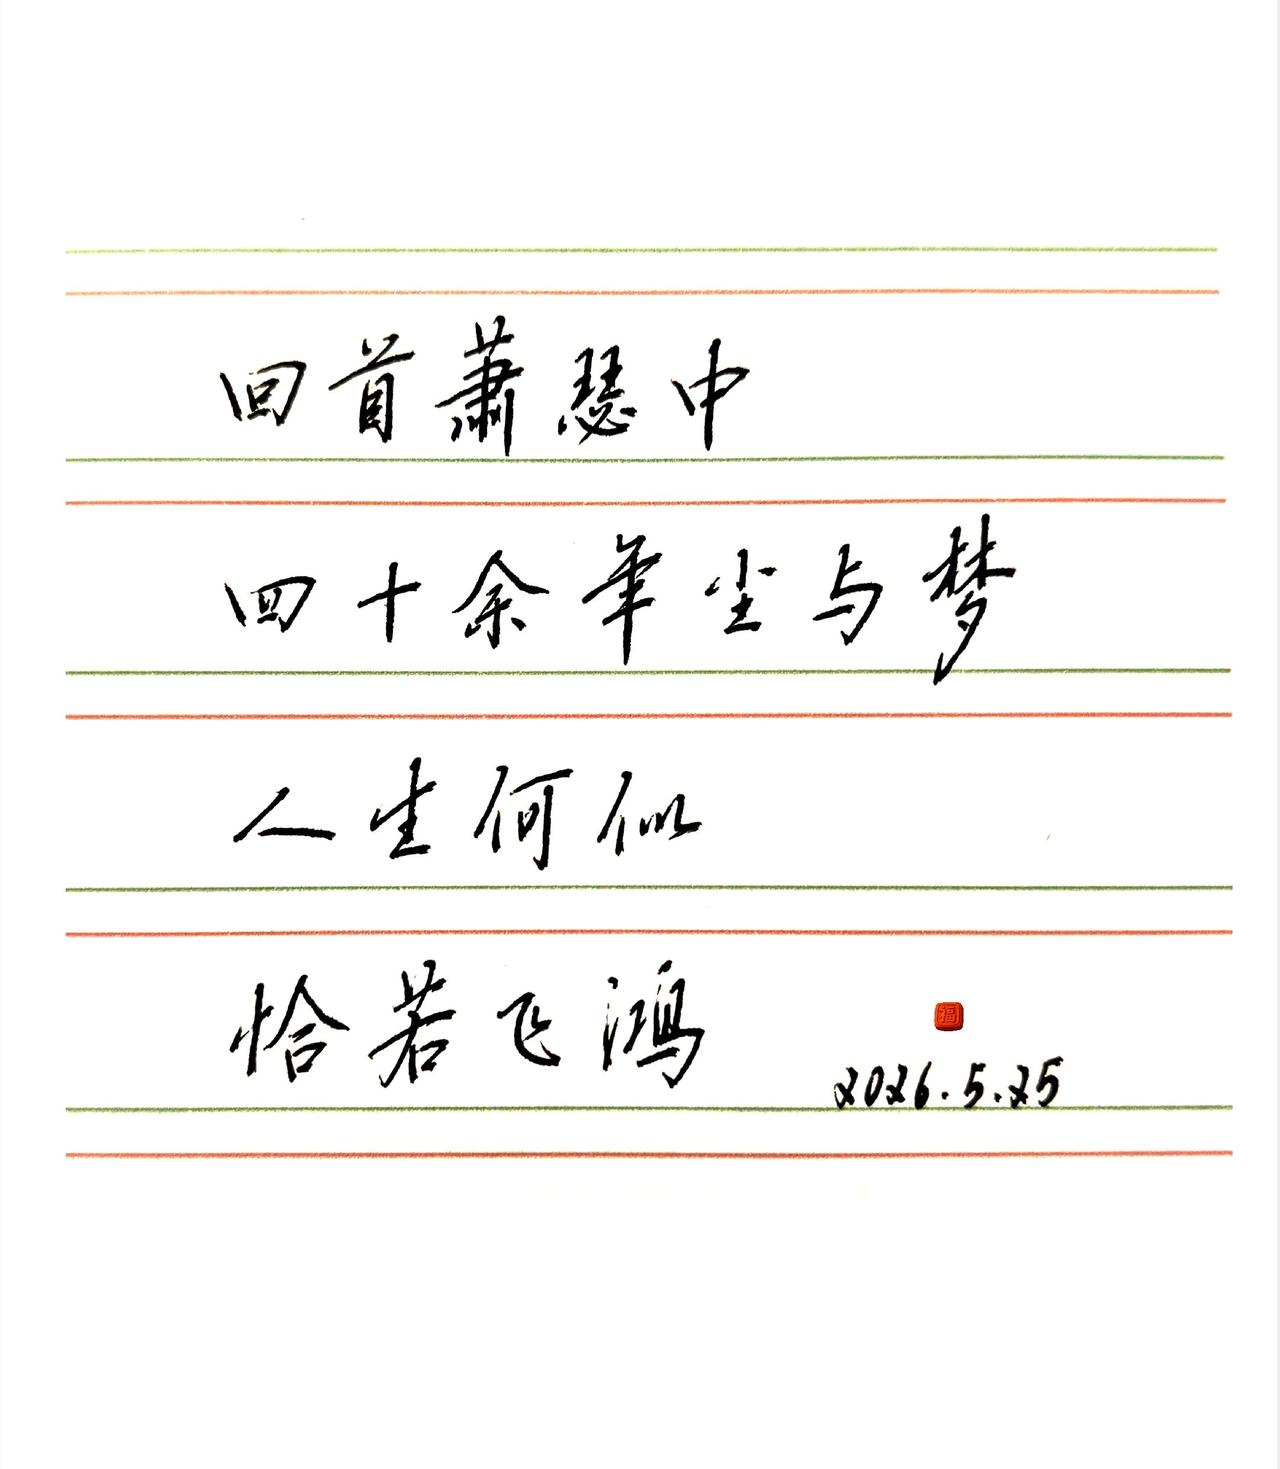 回首蕭瑟中
四十余年尘与梦
人生何似
恰若飞鸿
福
2026.5.25